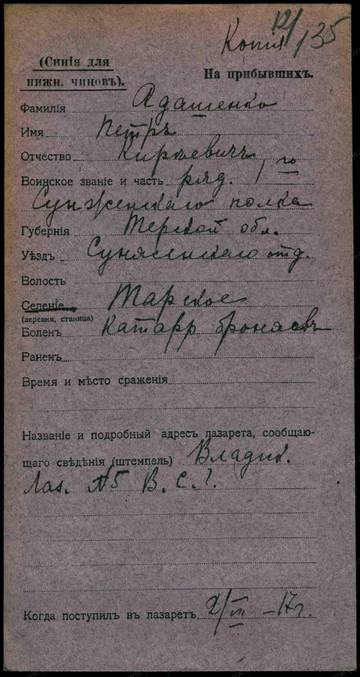 Копія 12/135
(Синія для
нижн. чиновъ).
На прибывшихъ.
Фамилія Адашенко
Имя Петръ
Отчество
Воинское званіе и часть ряд. 1го
Сунженскаго полка
Губернія Терской обл.
Уѣздъ Сунженскаго отд.
Волость
Селеніе Тарское
(деревня, станица)
Боленъ Катарр бронховъ
Раненъ
Время и мѣсто сраженія
Названіе и подробный адресъ лазарета, сообщаю-
щаго свѣдѣнія (штемпель) Владик.
Лаз. №5 В.С.Г.
Когда поступилъ въ лазаретъ 2/VII –17г.